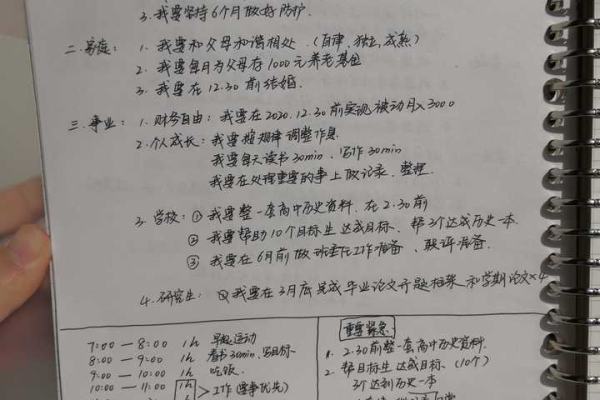 3. 我要坚持6个月做好防护.
二. 家庭: 1. 我要和父母和谐相处. (自律、独立、成熟)
2. 我要每月为父母存1000元养老基金
3. 我要在12.30前结婚.
三. 事业: 1. 财务自由: 我要在2020.12.30前实现被动月入3000
2. 个人成长: 我要按规律调整作息
我要每天读书30min, 写作30min
我要在处理重要的事上做记录、整理.
3. 学校: ① 我要整一套高中历史资料. 在2.30前
② 我要帮助10个目标生达成目标、帮3个达成历史一本
③ 我要在6月前做班主任工作准备、联评准备.
4. 研究生: ① 我要在3月底完成毕业论文开题框架和学期论文×4
7:00 — 8:00 1h 早起运动
8:00 — 9:00 1h 看书30min. 写目标.
9:00 — 10:00 1h 吃饭.
10:00 — 11:00 1h > 工作(要事优先)
重要紧急
1. 2.30前整一套高中历史资料.
2. 帮目标生达成目标. (10个)
3个达到历史一本